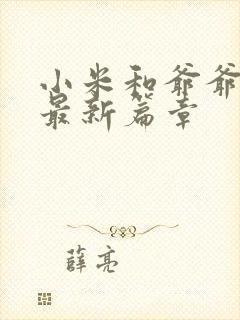 小米和爷爷
最新篇章
薛亮